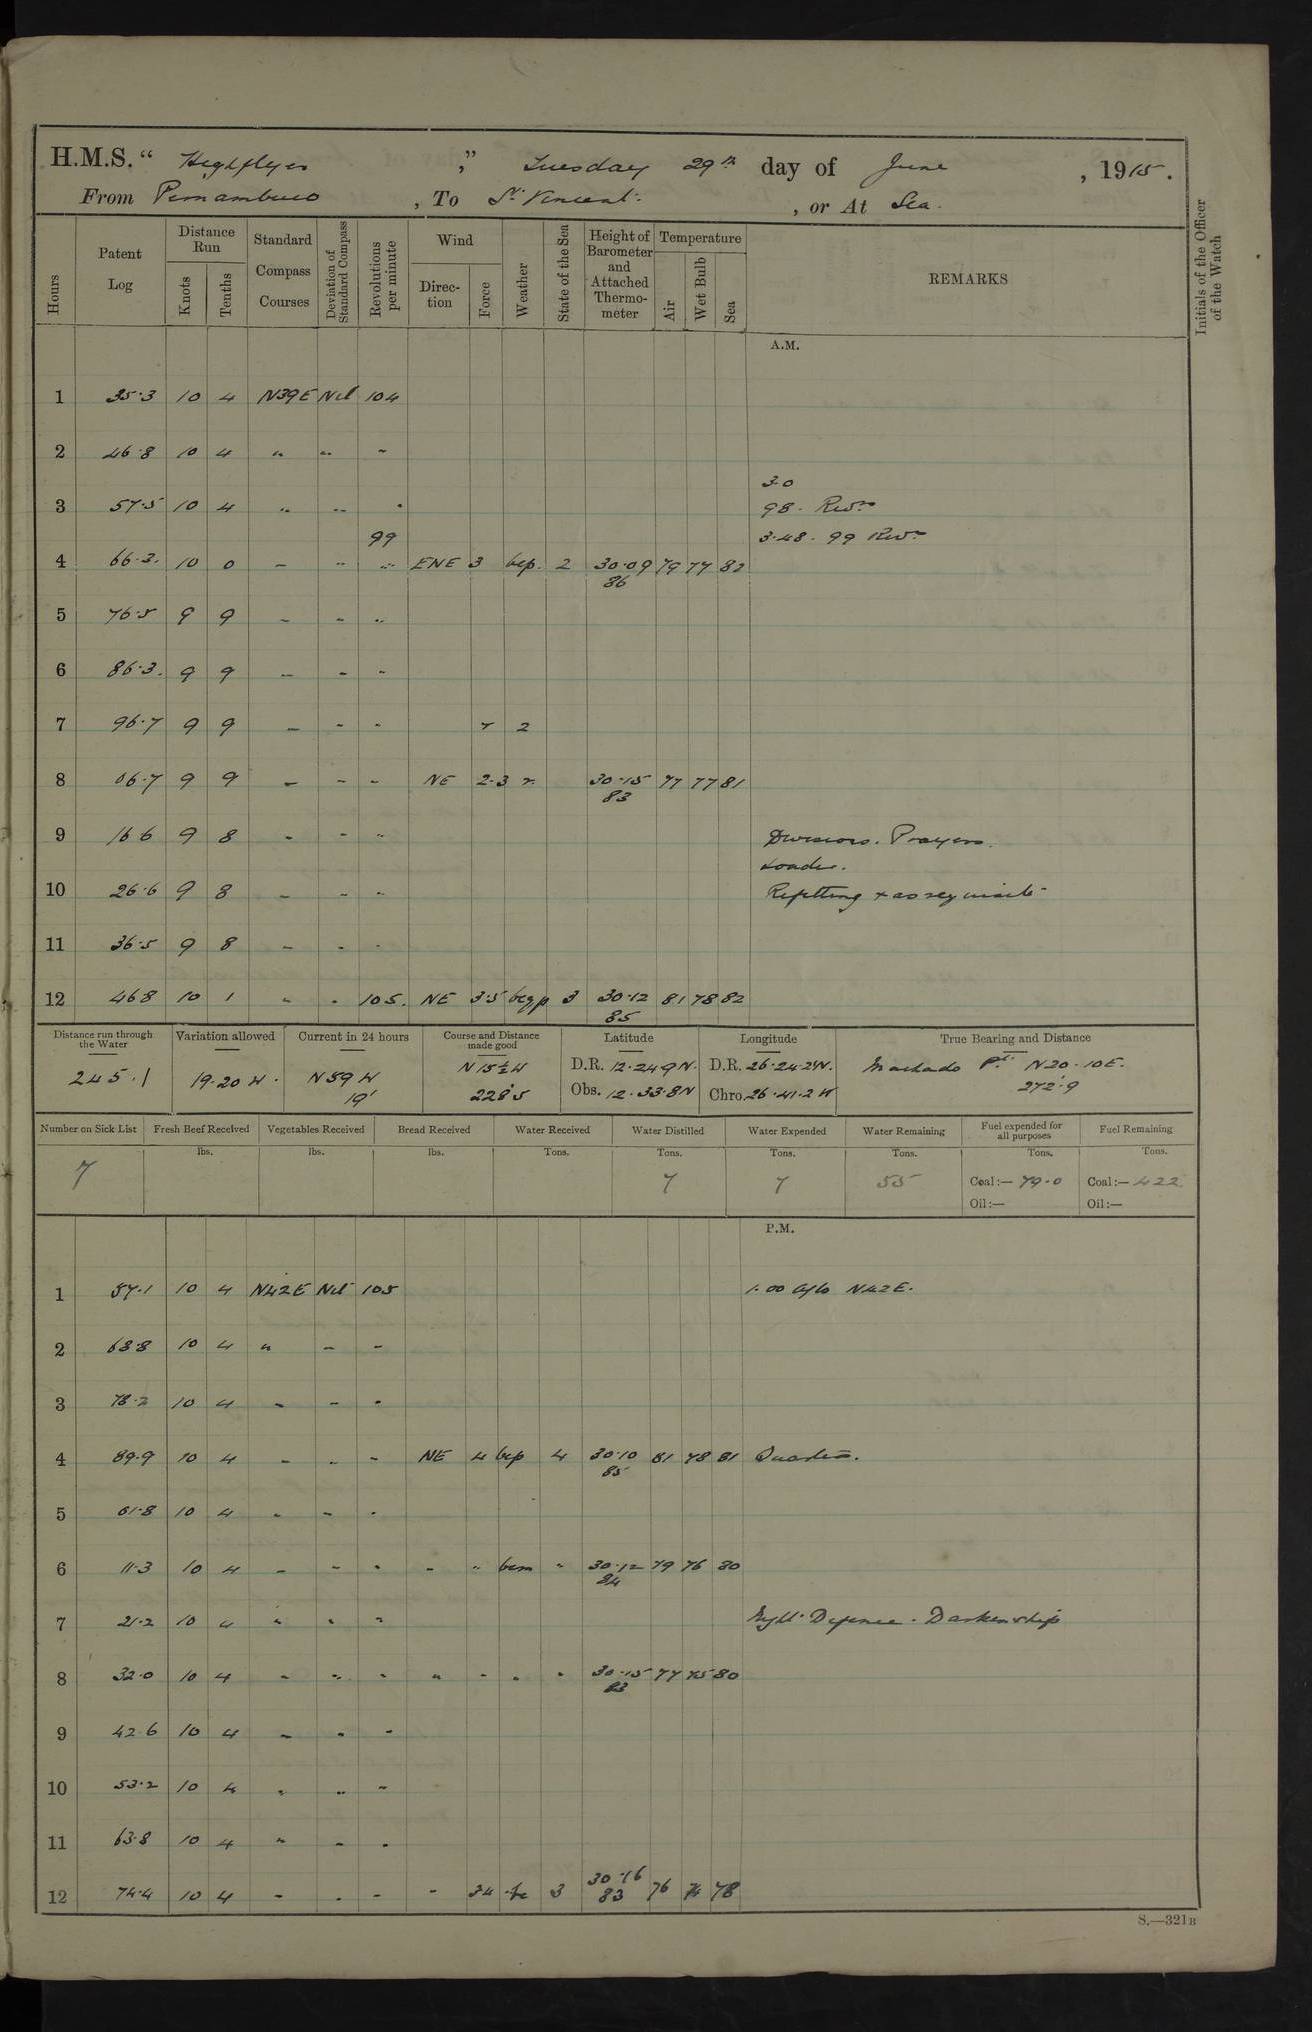 H.M.S. " Highflyer " Tuesday 29th day of June, 1915.
From Pernambuco, To St. Vincent, or At Sea.
Hours
Patent Log
Distance Run
Knots
Tenths
Standard Compass Courses
Deviation of Standard Compass
Revolutions per minute
Wind
Direction
Force
Weather
State of the Sea
Height of Barometer and Attached Thermometer
Temperature
Air
Wet Bulb
Sea
REMARKS
Initials of the Officer of the Watch
A.M.
1 35·3 10 4 N39E Nil 104
2 46·8 10 4 " " "
3·0
3 57·5 10 4 " " " 98 - Revs
99 3·48 - 99 Revs
4 66·3 10 0 " " " ENE 3 bcp. 2 30·09 79 77 82
86
5 76·5 9 9 " " "
6 86·3 9 9 " " "
7 96·7 9 9 " " " r 2
8 06·7 9 9 " " " NE 2·3 r 30·15 77 77 81
83
9 16 6 9 8 " " " Divisions. Prayers.
10 26·6 9 8 " " " Refitting + as requisite
11 36·5 9 8 " " "
12 46 8 10 1 " " 105. NE 3·5 bcqp 3 30·12 81 78 82
85
Distance run through the Water
245.1
Variation allowed
19·20 W.
Current in 24 hours
N 59 W
19'
Course and Distance made good
N 15½ W
228·5
Latitude
D.R. 12·24·9 N.
Obs. 12·33·8 N
Longitude
D.R. 26·24·2 W.
Chro. 26·41·2 W
True Bearing and Distance
Machado Pt. N 20·10 E.
272·9
Number on Sick List
7
Fresh Beef Received
lbs.
Vegetables Received
lbs.
Bread Received
lbs.
Water Received
Tons.
Water Distilled
Tons.
7
Water Expended
Tons.
7
Water Remaining
Tons.
55
Fuel expended for all purposes
Tons.
Coal:— 79·0
Oil:—
Fuel Remaining
Tons.
Coal:— 422
Oil:—
P.M.
1 57·1 10 4 N42E Nil 105 1·00 a/c N42E.
2 68·8 10 4 " " "
3 78·2 10 4 " " "
4 89·9 10 4 " " " NE 4 bcp 4 30·10 81 78 81 Quarters.
85
5 01·8 10 4 " " "
6 11·3 10 4 " " " " " bcm " 30·12 79 76 80
84
7 21·2 10 4 " " " Night Defence - Darken ship
8 32·0 10 4 " " " " " " " 30·15 77 75 80
83
9 42 6 10 4 " " "
10 53·2 10 4 " " "
11 63·8 10 4 " " "
12 74·4 10 4 " " " " 34 bc 3 30·16 76 74 78
83
S.—321B